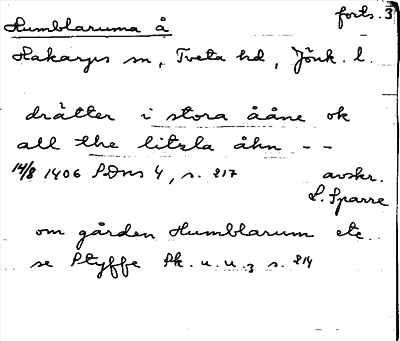 Humblaruma å forts. 3
Hakarps sn, Tveta hd, Jönk. l.
drätter i stora ååne ok
all the litzla åhn - -
14/8 1406 SDns 1, s. 817 avskr.
L. Sparre
om gården Humblarum etc.
se Styffe Sk. u. u.3 s. 214